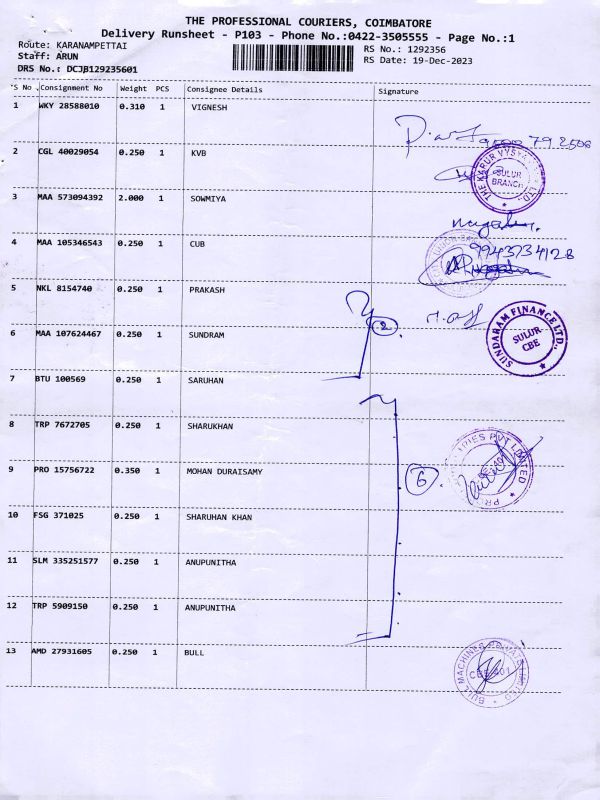 THE PROFESSIONAL COURIERS, COIMBATORE
Delivery Runsheet - P103 - Phone No.:0422-3505555 - Page No.:1
Route: KARANAMPETTAI
RS No.: 1292356
Staff: ARUN
RS Date: 19-Dec-2023
DRS No.: DCJB129235601
S No Consignment No Weight PCS Consignee Details Signature
1 WKY 28588010 0.310 1 VIGNESH
2 CGL 40029054 0.250 1 KVB
THE KARUR VYSYA LTD., SULUR BRANCH
3 MAA 573094392 2.000 1 SOWMIYA
4 MAA 105346543 0.250 1 CUB
9943734128
5 NKL 8154740 0.250 1 PRAKASH
6 MAA 107624467 0.250 1 SUNDRAM
2
SUNDARAM FINANCE LTD., SULUR CBE
7 BTU 100569 0.250 1 SARUHAN
8 TRP 7672705 0.250 1 SHARUKHAN
9 PRO 15756722 0.350 1 MOHAN DURAISAMY
6
PVT LIMITED
10 FSG 371025 0.250 1 SHARUHAN KHAN
11 SLM 335251577 0.250 1 ANUPUNITHA
12 TRP 5909150 0.250 1 ANUPUNITHA
13 AMD 27931605 0.250 1 BULL
BULL MACHINES PRIVATE LIMITED